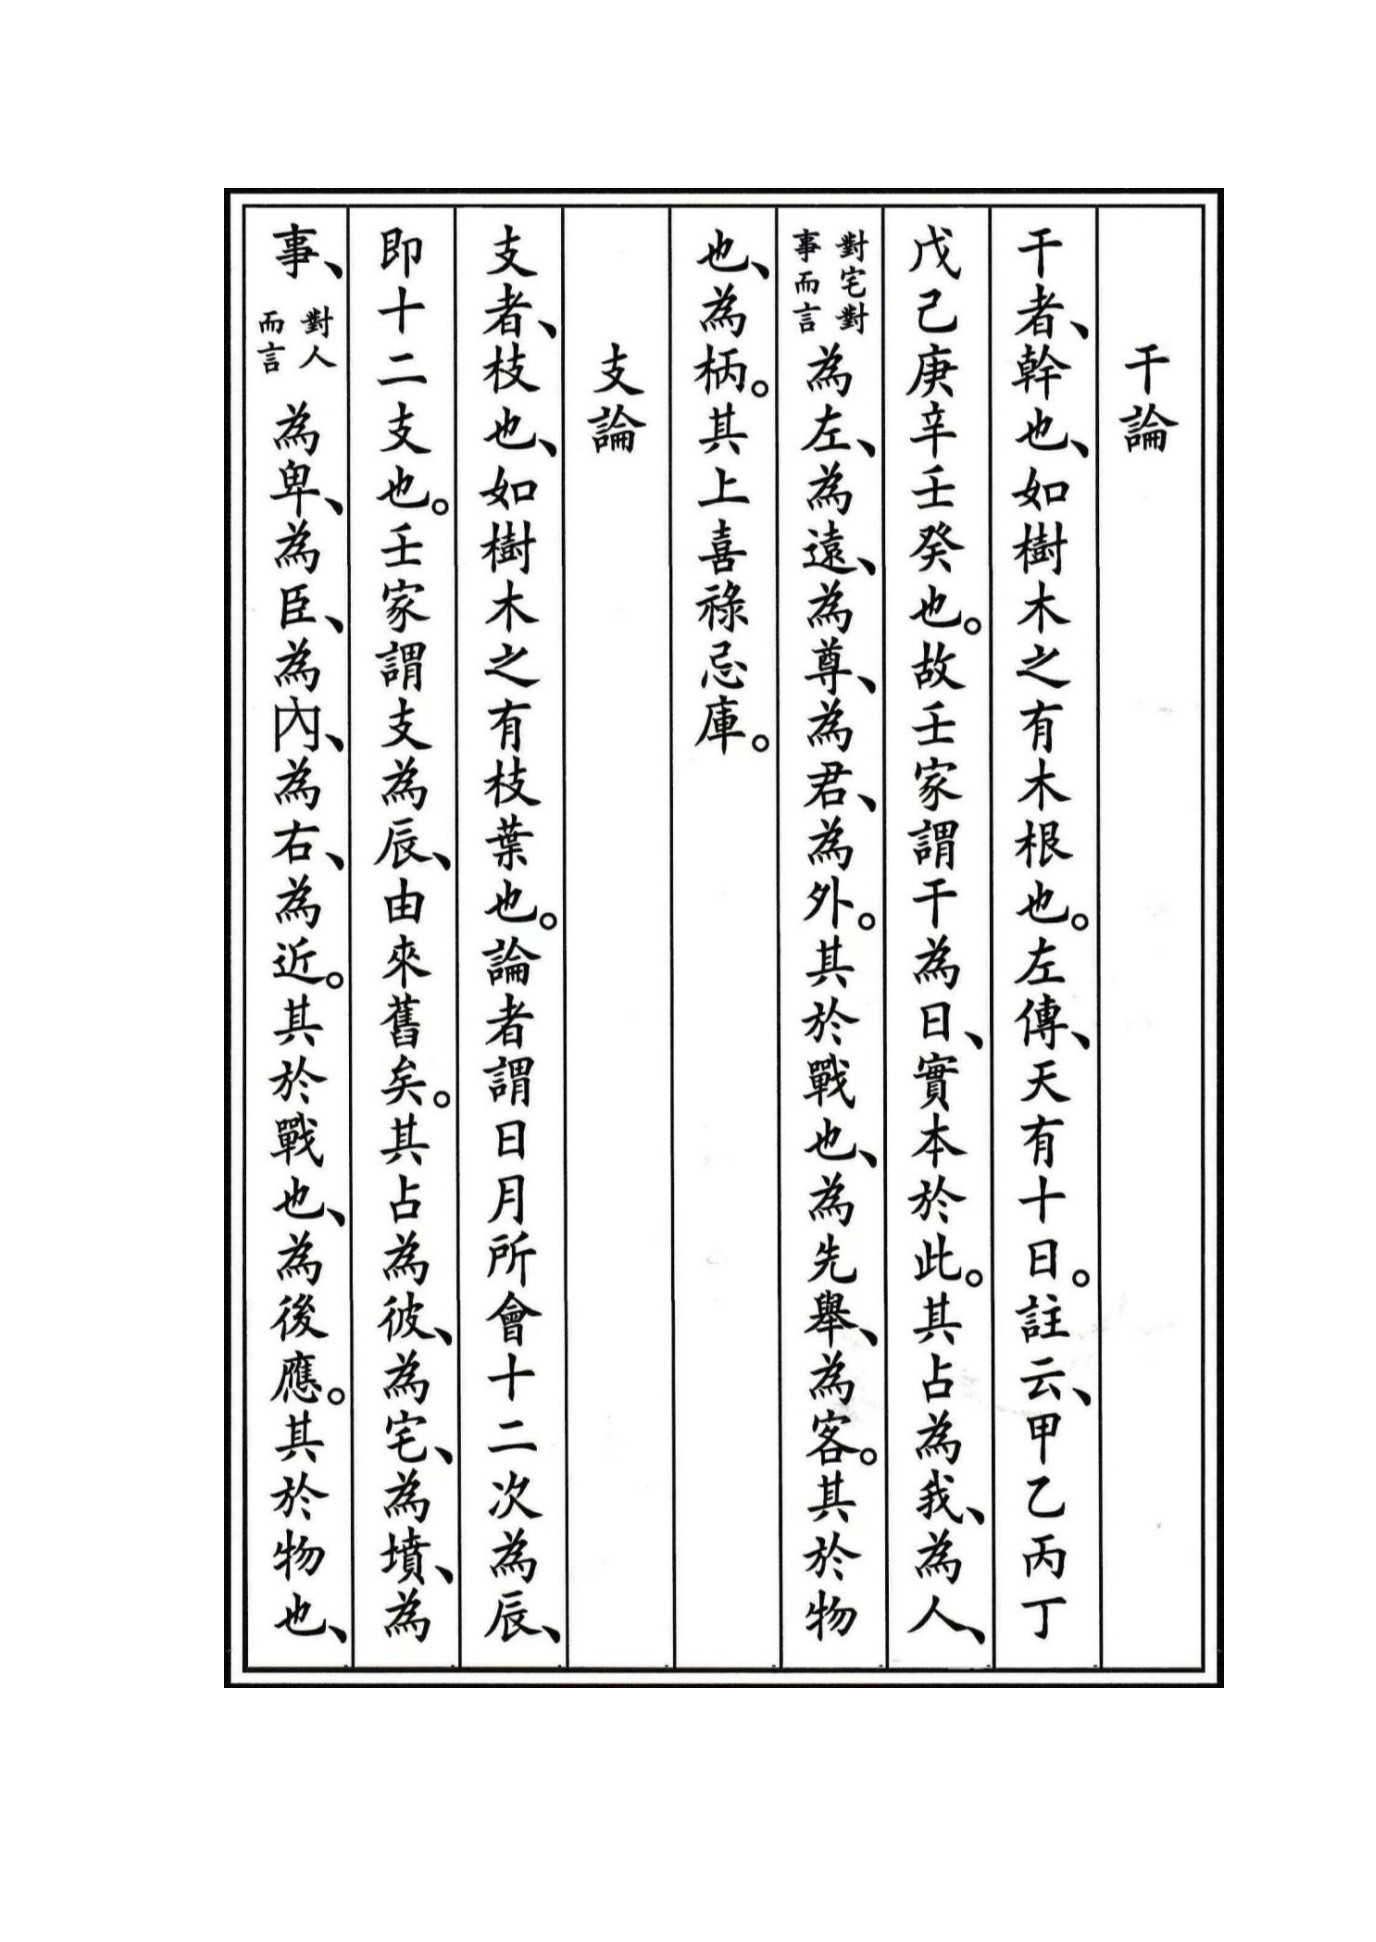 干論
干者、幹也、如樹木之有木根也。左傳、天有十日。註云、甲乙丙丁
戊己庚辛壬癸也。故壬家謂干為日、實本於此。其占為我、為人、
對宅對事而言為左、為遠、為尊、為君、為外。其於戰也、為先舉、為客。其於物
也、為柄。其上喜祿忌庫。
支論
支者、枝也、如樹木之有枝葉也。論者謂日月所會十二次為辰、
即十二支也。壬家謂支為辰、由來舊矣。其占為彼、為宅、為墳、為
事、對人而言為卑、為臣、為內、為右、為近。其於戰也、為後應。其於物也、